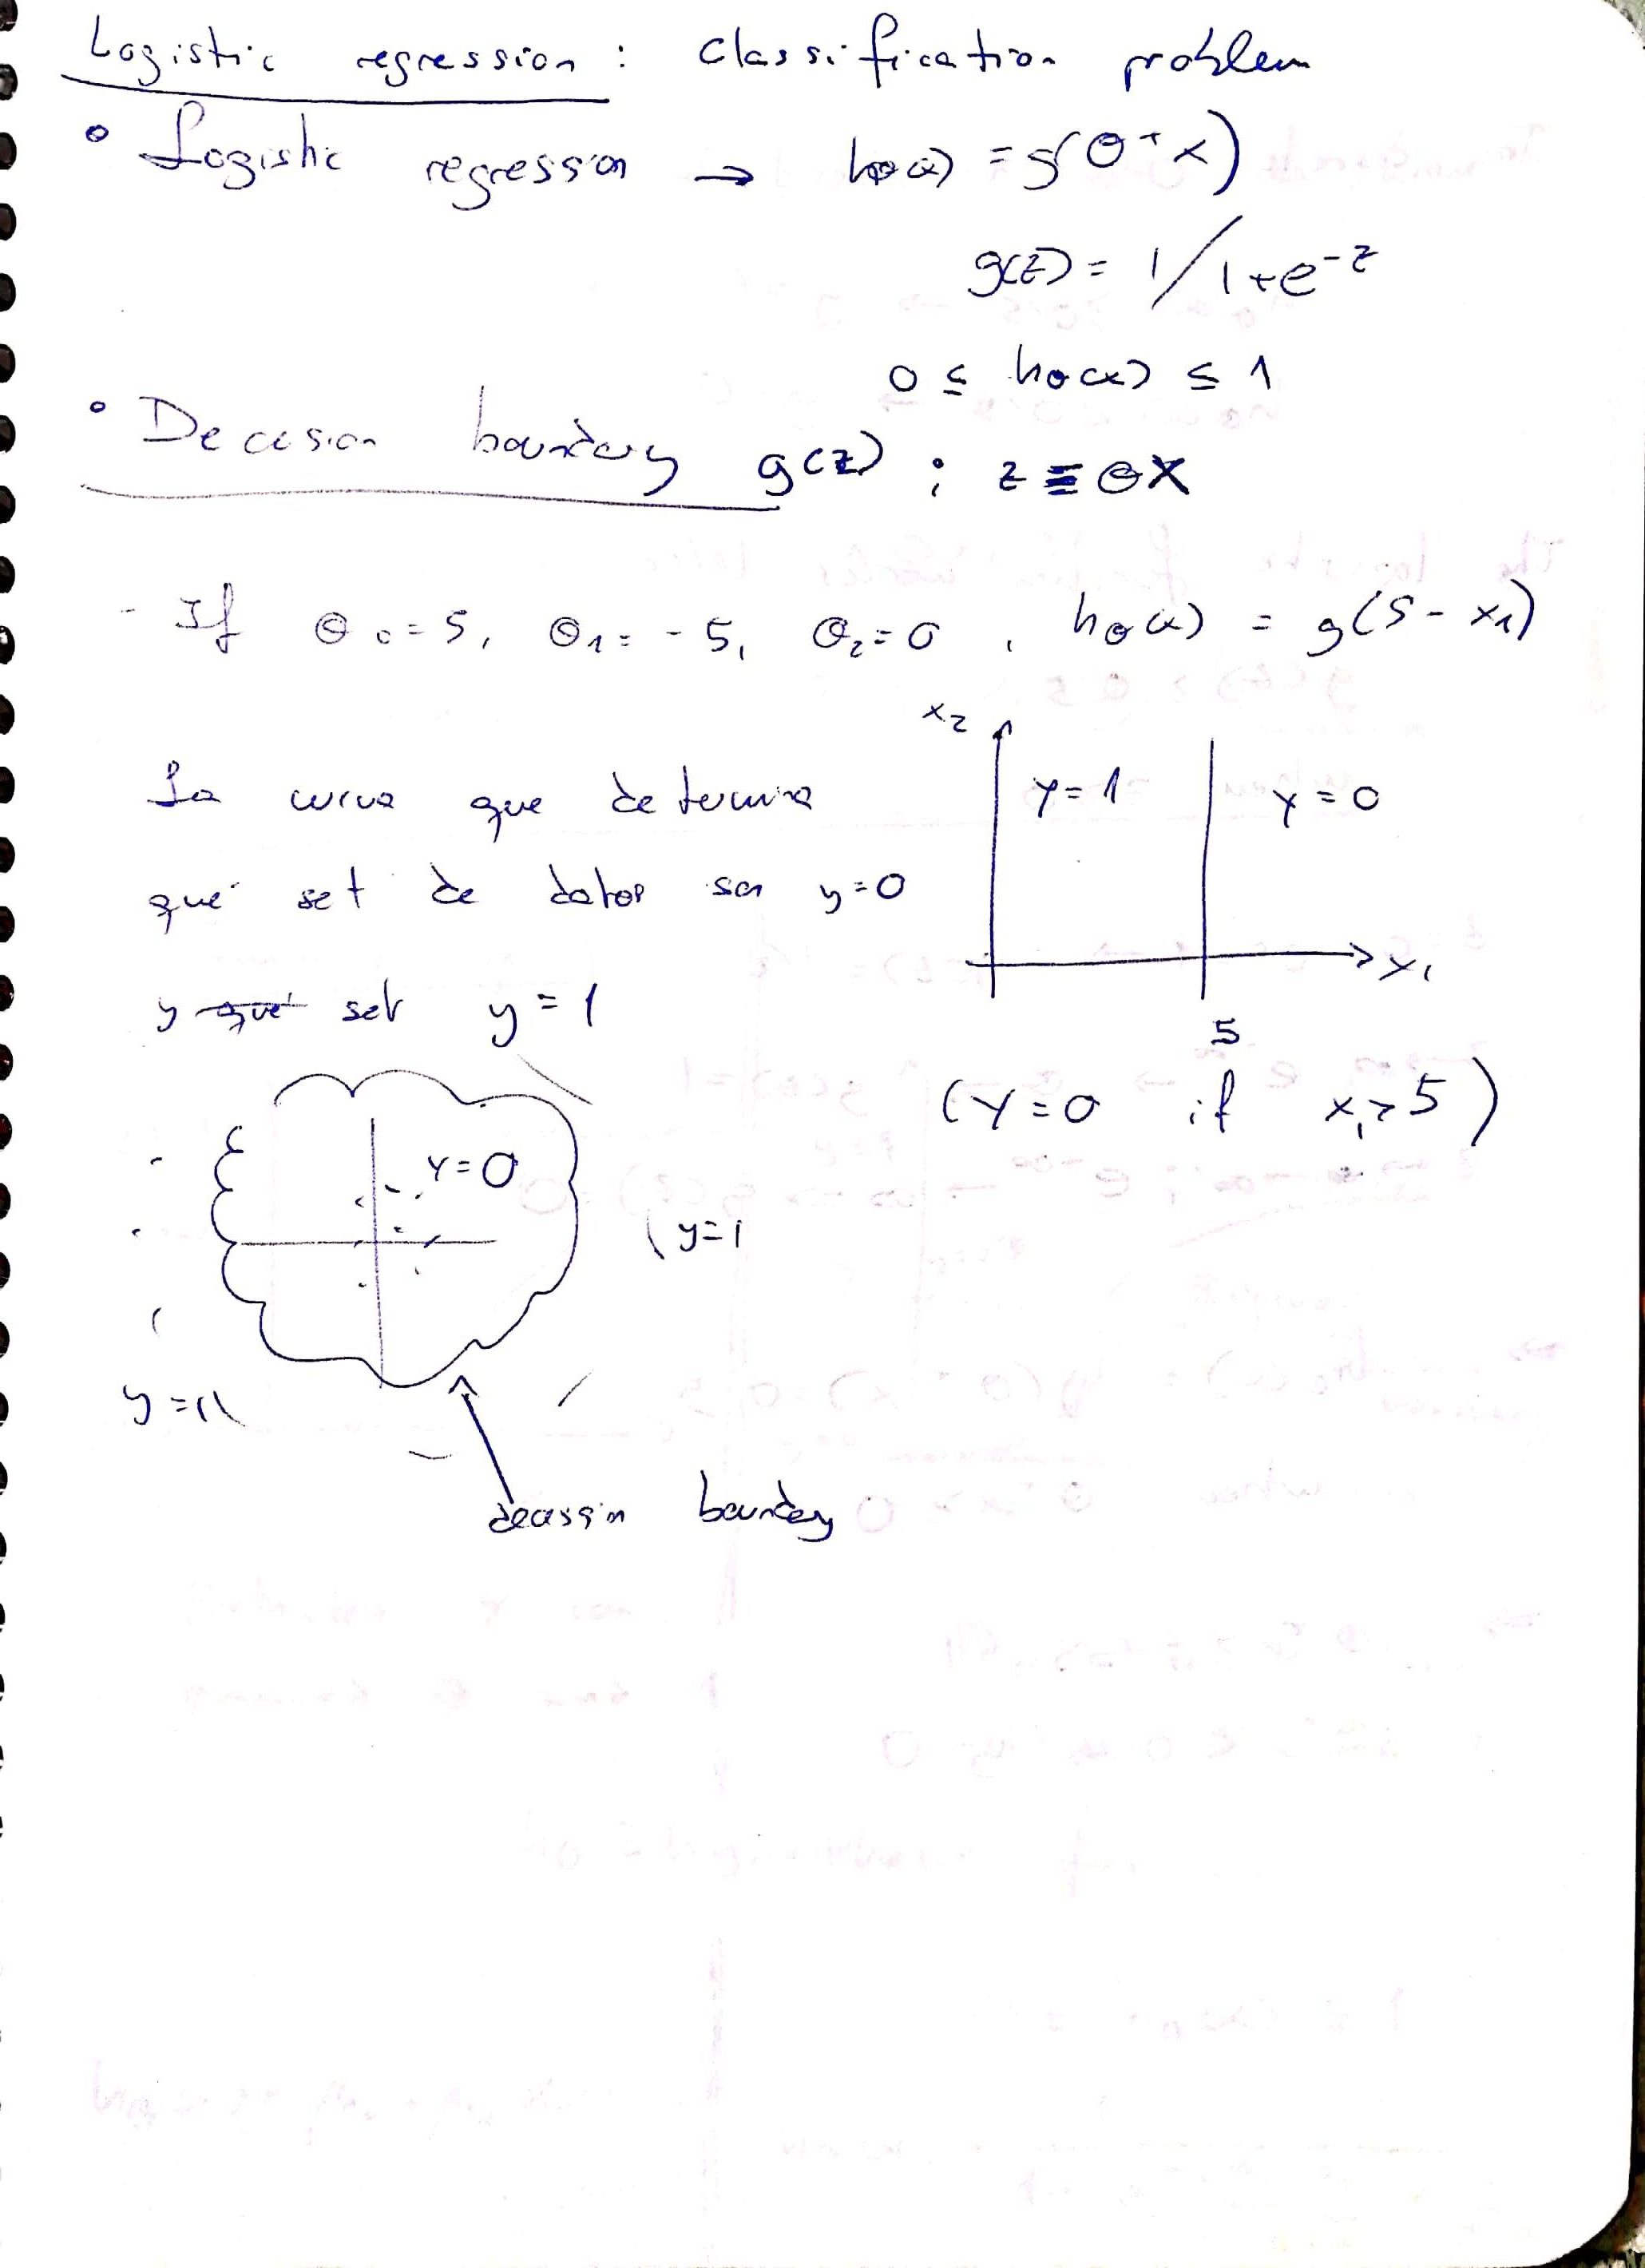 Logistic regression: Classification problem
• Logistic regression → hθ(x) = g(θᵀx)
g(z) = 1/1+e^-z
0 ≤ hθ(x) ≤ 1
• Decision boundary g(z) ; z = θX
- If θ0 = 5, θ1 = -5, θ2 = 0, hθ(x) = g(5 - x1)
x2
y=1 y=0
La curva que determina
qué set de datos son y=0
x1
y qué set y=1
5
(y=0 if x1>5)
y=0
y=1
y=1
decission boundary